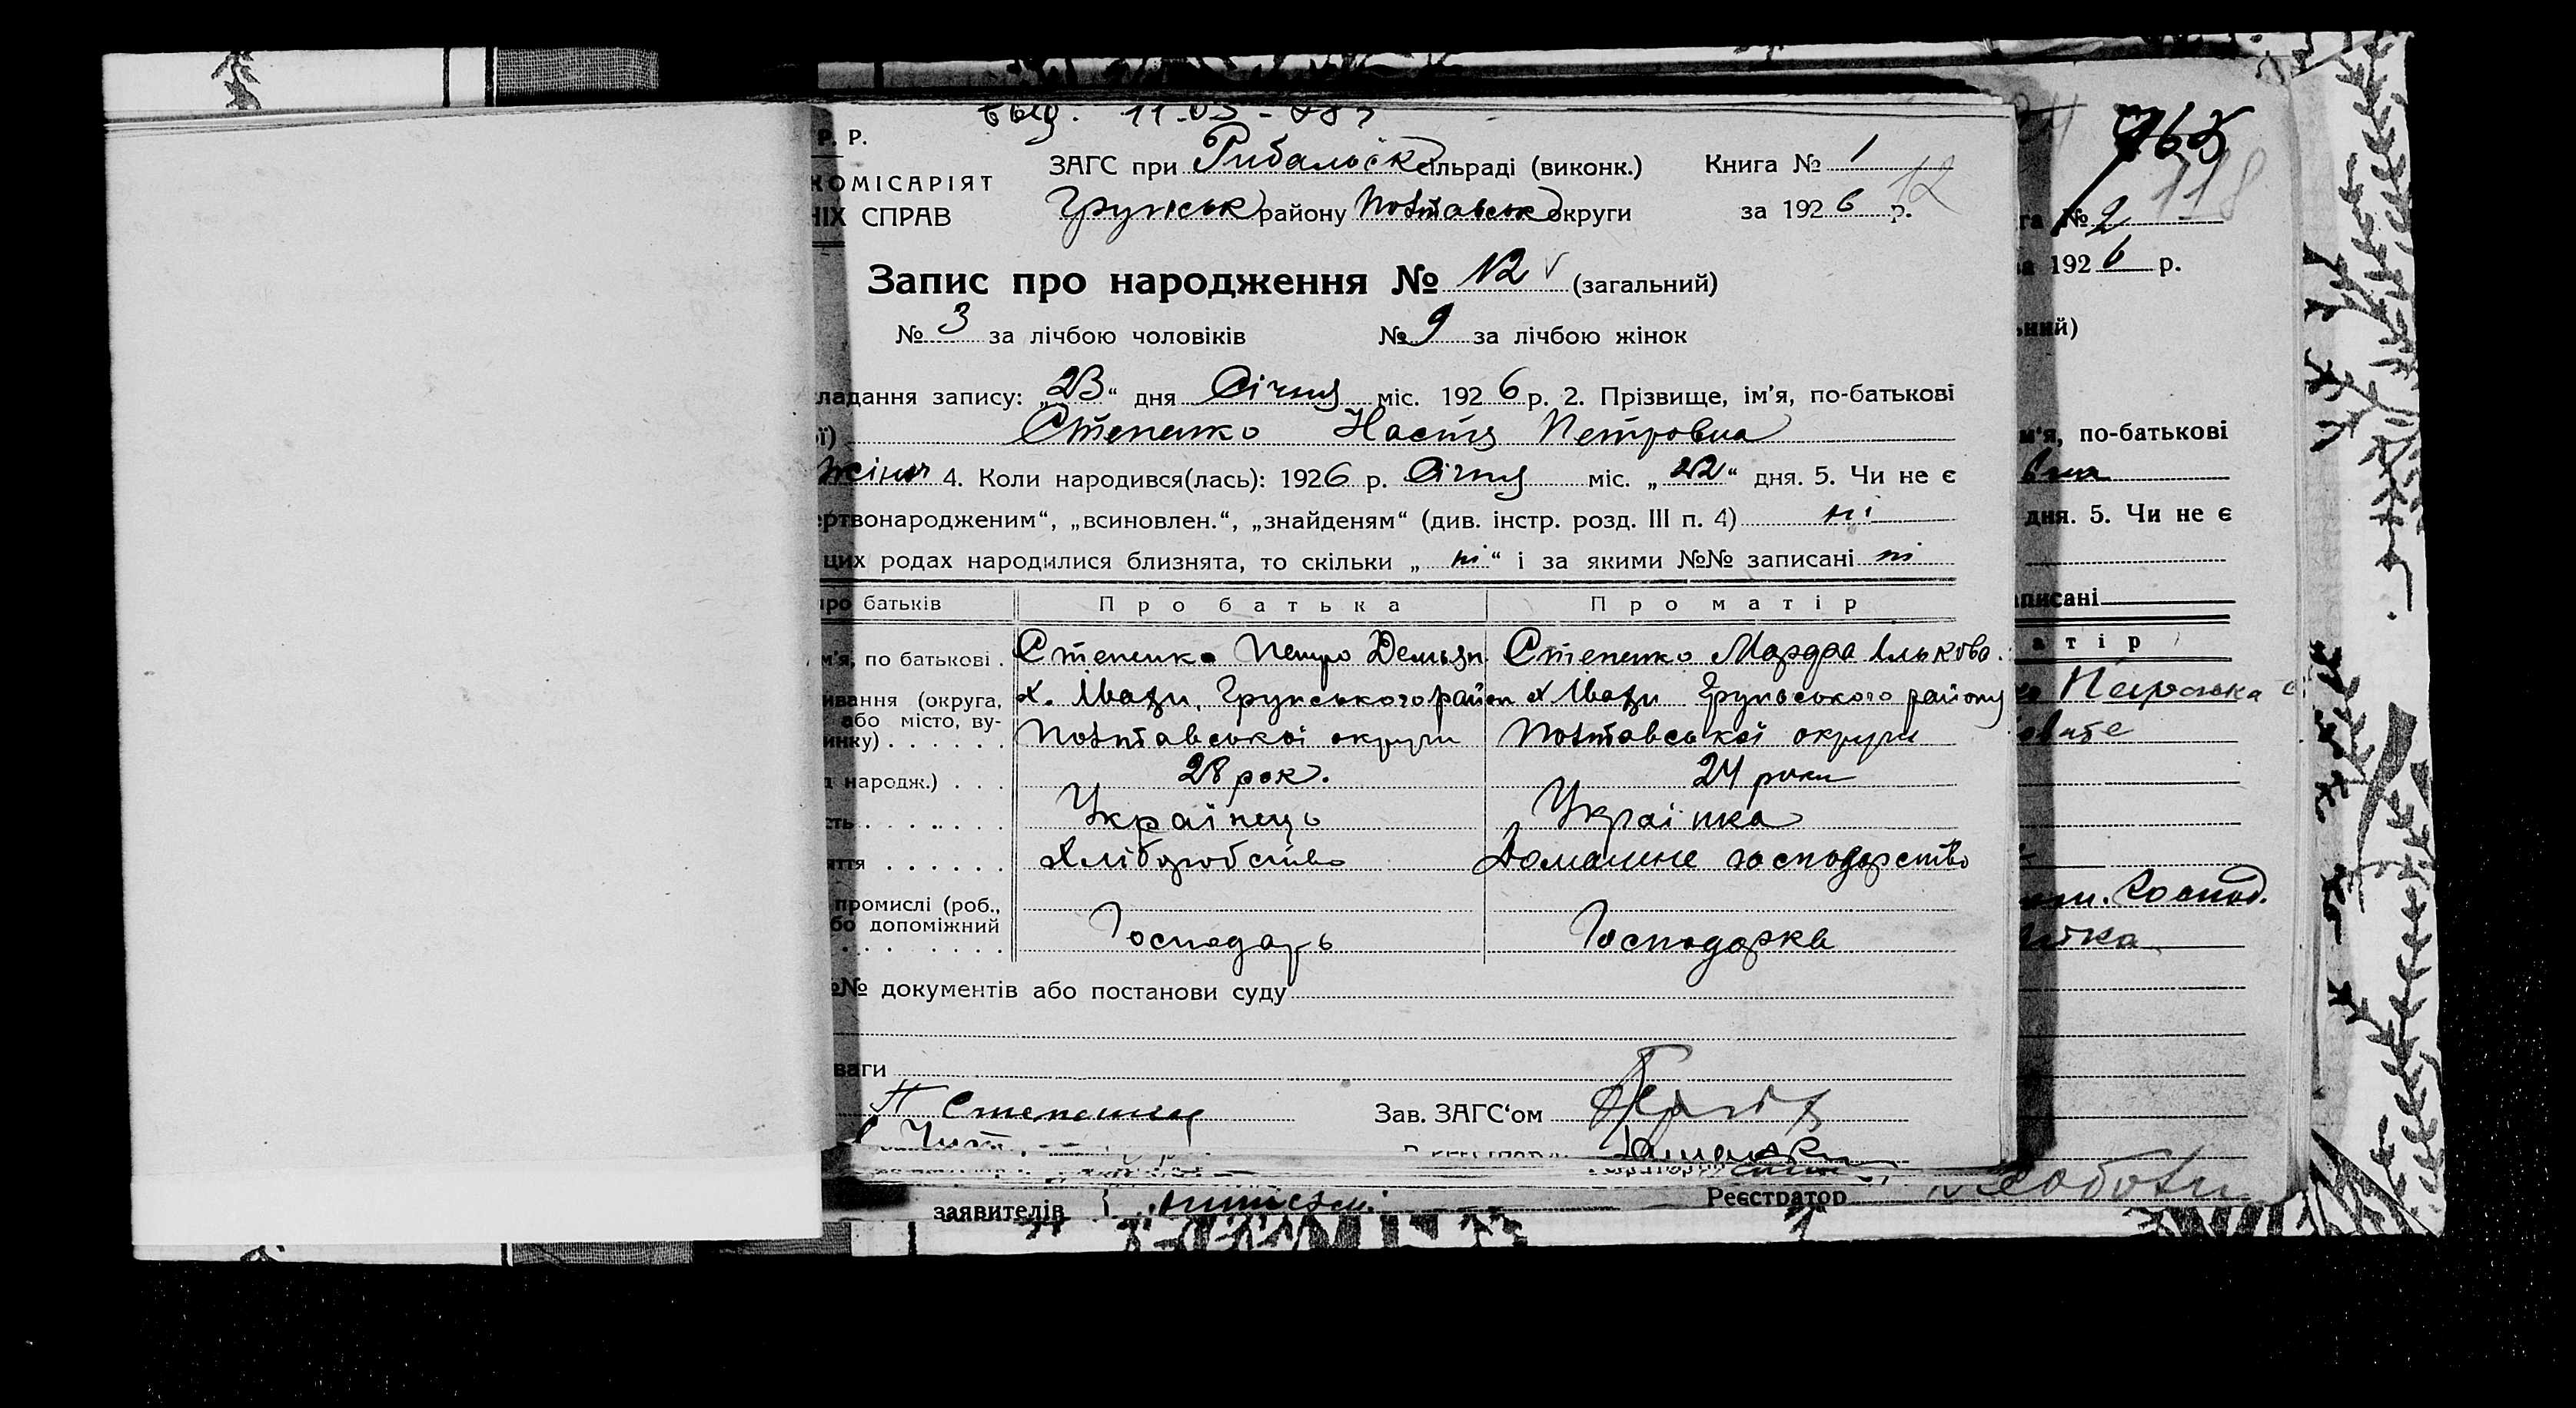 Р. Р.
ЗАГС при Рибальск сільраді (виконк.) Книга № 1
КОМІСАРІЯТ
12
НІХ СПРАВ Грунськ району Полтавськ округи за 1926 р.
Запис про народження № 12 (загальний)
№ 3 за лічбою чоловіків № 9 за лічбою жінок
ладання запису: „23“ дня Січня міс. 1926 р. 2. Прізвище, ім'я, по-батькові
ої) Степенко Настя Петровна
жіноч 4. Коли народився(лась): 1926 р. Січня міс. „22“ дня. 5. Чи не є
ертвонародженим“, „всиновлен.“, „знайденям“ (див. інстр. розд. III п. 4) ні
цих родах народилися близнята, то скільки „ні“ і за якими №№ записані ні
про батьків Про батька Про матір
м'я, по батькові . Степенко Петро Демьян Степенко Марфа Ількова.
ивання (округа, х. Іваги, Грунського район х Іваги Грунського району
або місто, ву-
инку) . . . . . . Полтавської округи Полтавської округи
народж.) . . . 28 рок. 24 роки
сть . . . . . . . Українець Українка
яття . . . . . . Хліборобство Домашнє господарство
промислі (роб.,
бо допоміжний
. . . . . . . . Господарь Господарка
№№ документів або постанови суду
ваги
П Степенко Зав. ЗАГС'ом
заявителів Реєстратор
118
га № 2
за 1926 р.
ьний)
м'я, по-батькові
вна
дня. 5. Чи не є
аписані
атір
Господ.